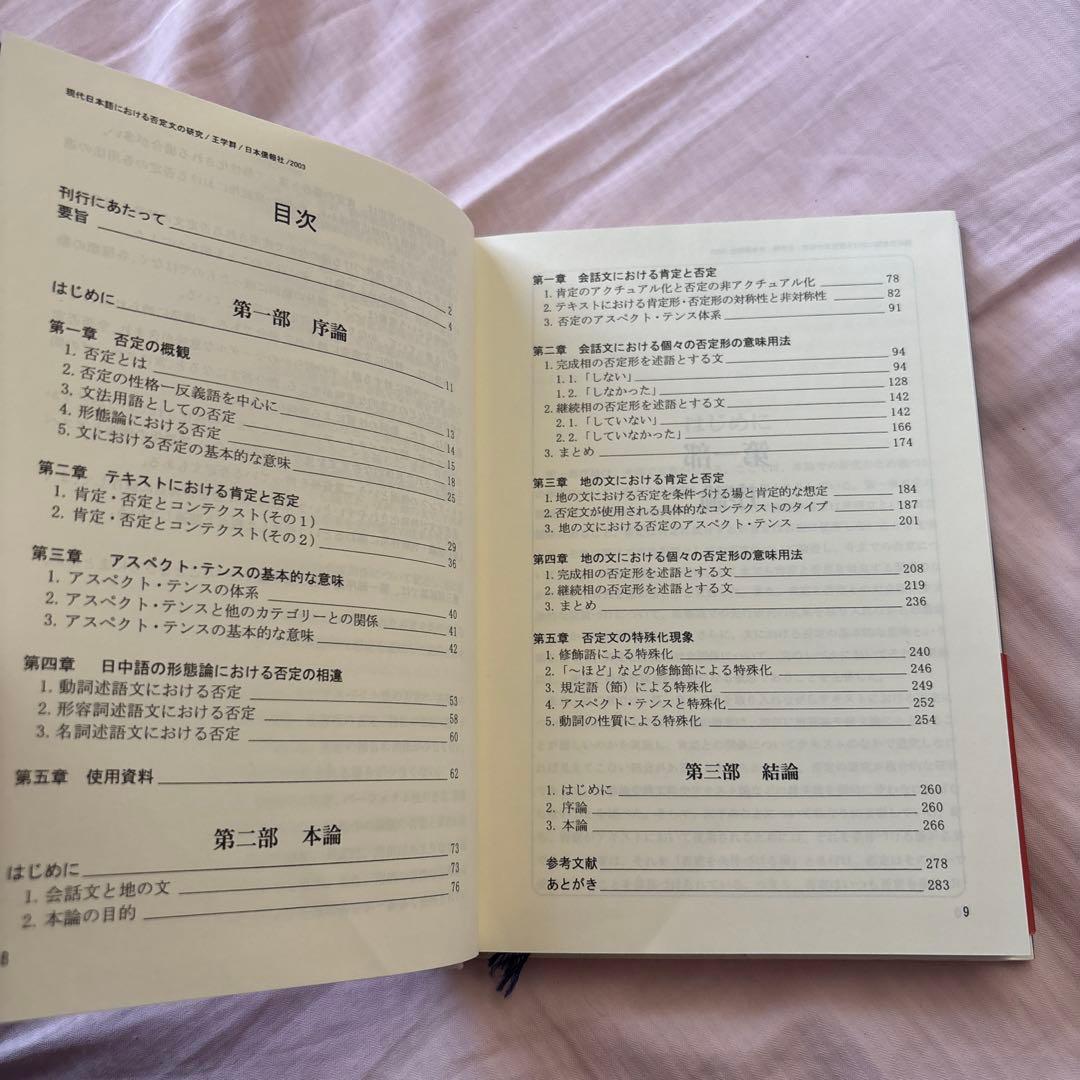 現代日本語における否定文の研究/王学群/日本僑報社/2003
目次
刊行にあたって 2
要旨 4
第一部 序論
はじめに 11
第一章 否定の概観
1. 否定とは 13
2. 否定の性格ー反義語を中心に 14
3. 文法用語としての否定 15
4. 形態論における否定 18
5. 文における否定の基本的な意味 25
第二章 テキストにおける肯定と否定
1. 肯定・否定とコンテクスト(その1) 29
2. 肯定・否定とコンテクスト(その2) 36
第三章 アスペクト・テンスの基本的な意味
1. アスペクト・テンスの体系 40
2. アスペクト・テンスと他のカテゴリーとの関係 41
3. アスペクト・テンスの基本的な意味 42
第四章 日中語の形態論における否定の相違
1. 動詞述語文における否定 53
2. 形容詞述語文における否定 58
3. 名詞述語文における否定 60
第五章 使用資料 62
第二部 本論
はじめに 73
1. 会話文と地の文 73
2. 本論の目的 76
8
第一章 会話文における肯定と否定
1. 肯定のアクチュアル化と否定の非アクチュアル化 78
2. テキストにおける肯定形・否定形の対称性と非対称性 82
3. 否定のアスペクト・テンス体系 91
第二章 会話文における個々の否定形の意味用法
1. 完成相の否定形を述語とする文 94
1. 1. 「しない」 94
1. 2. 「しなかった」 128
2. 継続相の否定形を述語とする文 142
2. 1. 「していない」 142
2. 2. 「していなかった」 166
3. まとめ 174
第三章 地の文における肯定と否定
1. 地の文における否定を条件づける場と肯定的な想定 184
2. 否定文が使用される具体的なコンテクストのタイプ 187
3. 地の文における否定のアスペクト・テンス 201
第四章 地の文における個々の否定形の意味用法
1. 完成相の否定形を述語とする文 208
2. 継続相の否定形を述語とする文 219
3. まとめ 236
第五章 否定文の特殊化現象
1. 修飾語による特殊化 240
2. 「～ほど」などの修飾節による特殊化 246
3. 規定語（節）による特殊化 249
4. アスペクト・テンスと特殊化 252
5. 動詞の性質による特殊化 254
第三部 結論
1. はじめに 260
2. 序論 260
3. 本論 266
参考文献 278
あとがき 283
9